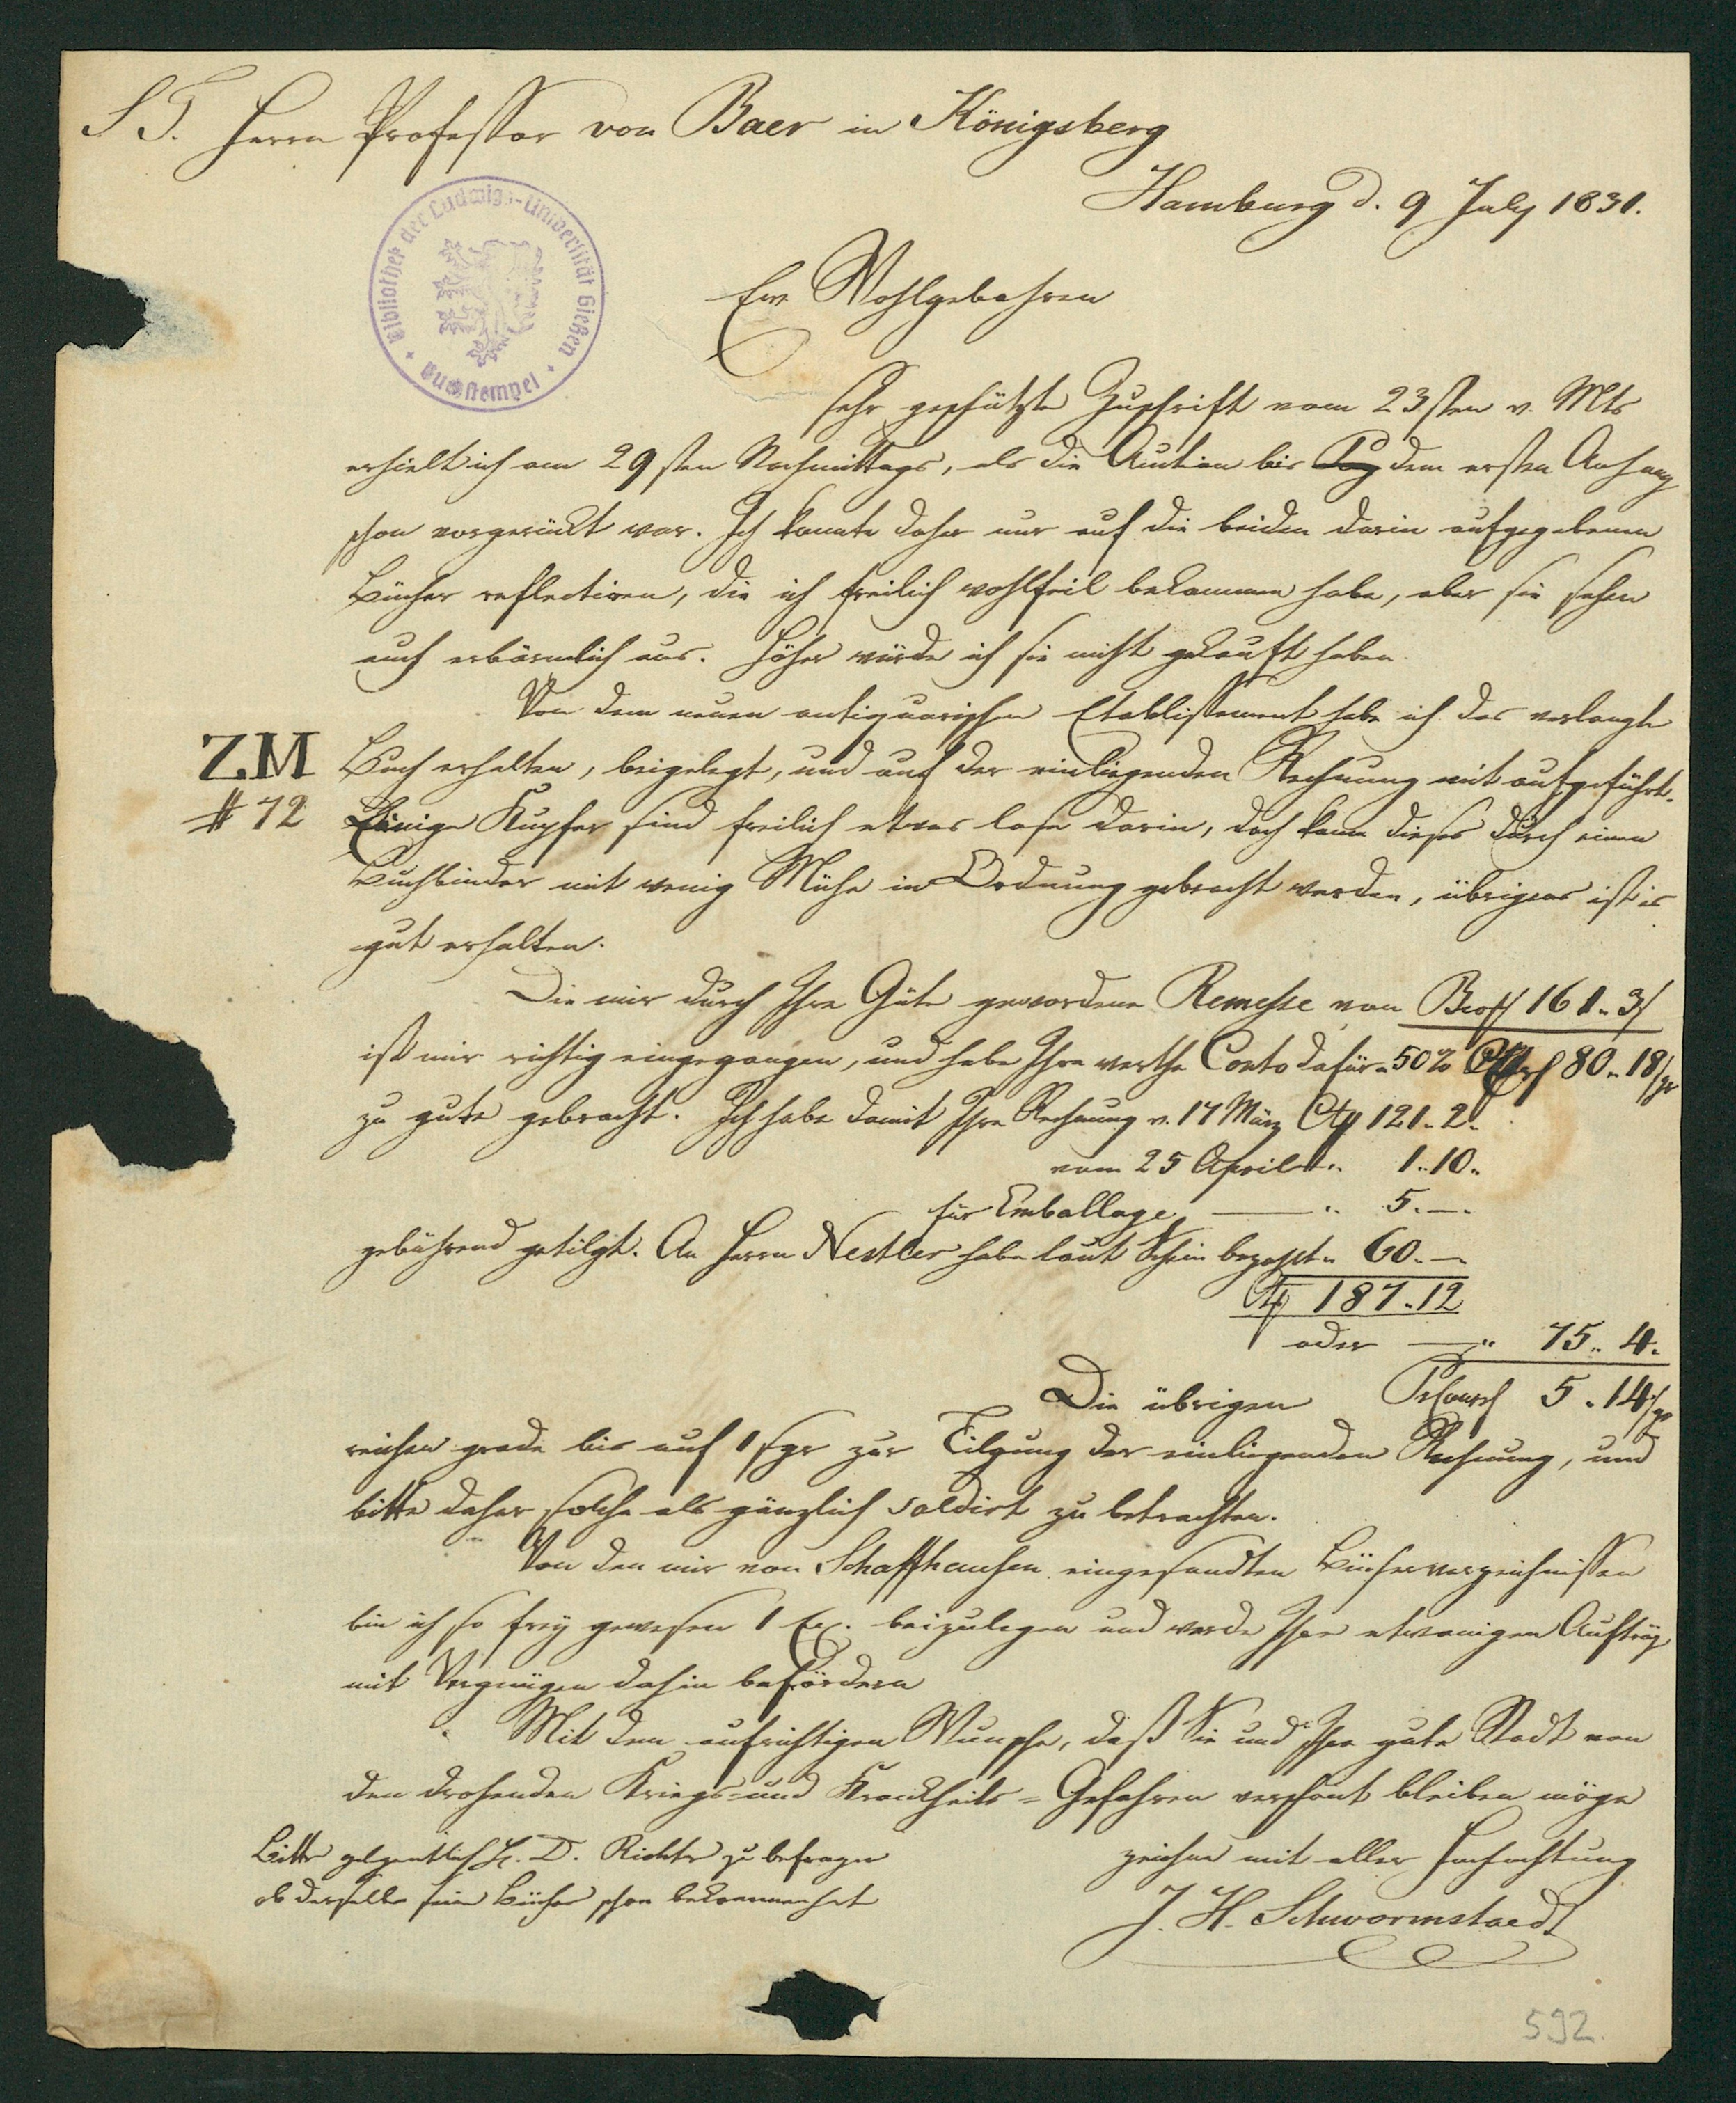 S T. Herrn Professor von Baer in Königsberg
Hamburg d. 9 July 1831.
Bibliothek der Ludwigs-Universität Gießen
Buchstempel
Ew Wohlgebohren
sehr geschätzte Zuschrift vom 23sten v. Mts
erhielt ich am 29sten Nachmittags, als die Auction bis dem ersten Anhang
schon vorgerückt war. Ich konnte daher nur auf die beiden darin aufgegebenen
Bücher reflectiren, die ich freilich wohlfeil bekommen habe, aber sie sehen
auch erbärmlich aus. Höher würde ich sie nicht gekauft haben.
Von dem neuen antiquarischen Etablissement habe ich das verlangte
ZM Buch erhalten, beigelegt, und auf der einliegenden Rechnung mit aufgeführt.
# 72 Einige Kupfer sind freilich etwas lose darin, doch kann dieses durch einen
Buchbinder mit wenig Mühe in Ordnung gebracht werden, übrigens ist es
gut erhalten.
Die mir durch Ihre Güte gewordene Remesse von 161.. 3
ist mir richtig eingegangen, und habe Ihre werthe Conto dafür 50% 80.. 18
zu gute gebracht. Ich habe damit Ihre Rechnung v. 17 März 121.. 2..
vom 25 April .. 1.. 10..
für Emballage — .. 5.. —.
gebührend getilgt. An Herrn Nestler habe laut Schein bezahlt .. 60.. —.
187.. 12
oder — .. 75.. 4.
Die übrigen 5.. 14
reichen grade bis auf 1 sgr zur Tilgung der einliegenden Rechnung, und
bitte daher solche als gänzlich soldirt zu betrachten.
Von den mir von Schaffhausen eingesandten Bücherverzeichnissen
bin ich so frey gewesen 1 Ex. beizulegen und werde Ihre etwanigen Aufträge
mit Vergnügen dahin befördern
Mit dem aufrichtigen Wunsche, daß Sie und Ihre gute Stadt von
den drohenden Kriegs- und Krankheits-Gefahren verschont bleiben möge
zeichne mit aller Hochachtung
J. H. Schwormstaedt
Bitte gelegentlich H. D. Richter zu befragen
ob derselbe seine Bücher schon bekommen hat
592.